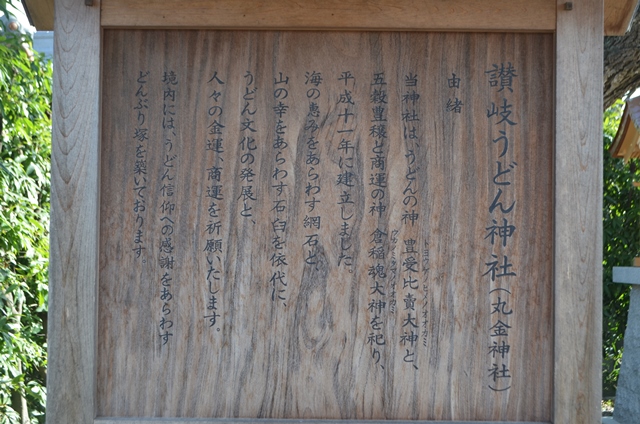 讃岐うどん神社(丸金神社)
由緒
当神社は、うどんの神 豊受比賣大神と、
五穀豊穣と商運の神 倉稲魂大神を祀り、
平成十一年に建立しました。
海の恵みをあらわす網石と、
山の幸をあらわす石臼を依代に、
うどん文化の発展と、
人々の金運、商運を祈願いたします。
境内には、うどん信仰への感謝をあらわす
どんぶり塚を築いております。